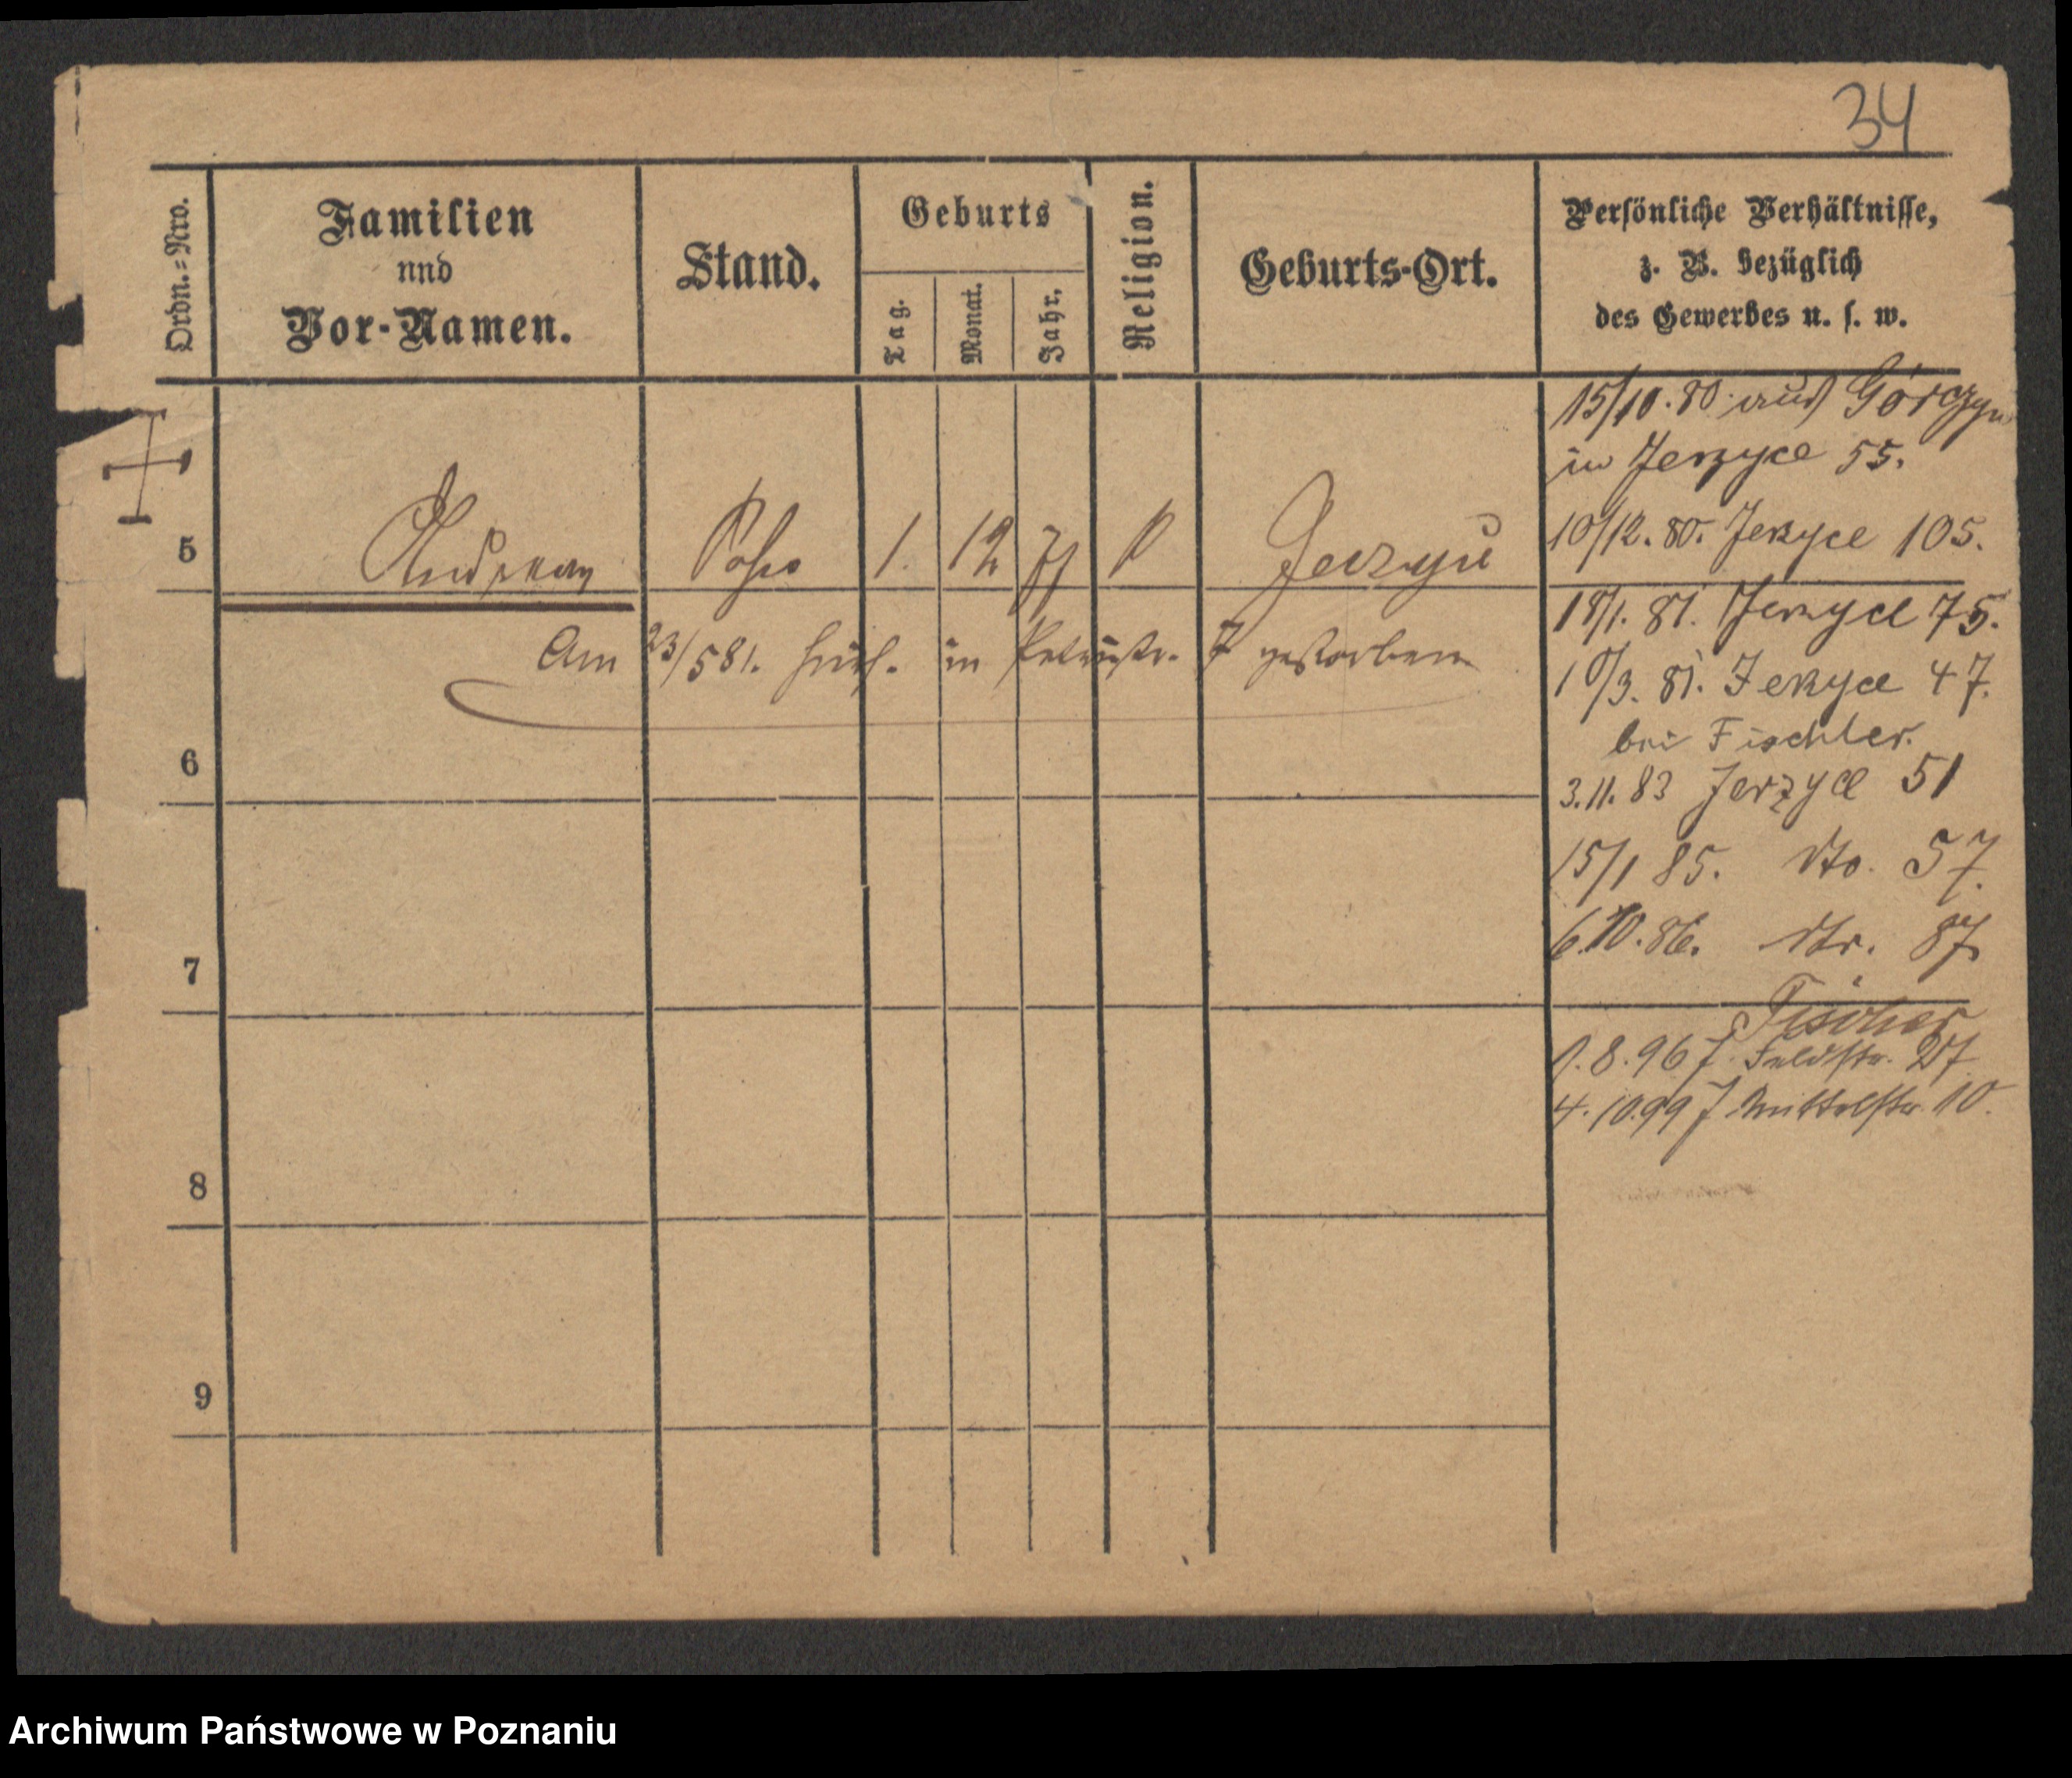 34
Ordn.-Nro.
Familien
und
Vor-Namen.
Stand.
Geburts
Tag.
Monat.
Jahr.
Religion.
Geburts-Ort.
Persönliche Verhältnisse,
z. B. bezüglich
des Gewerbes u. s. w.
15/10.80. aus Górczyn
in Jerzyce 55.
5 Andreas Sohn 1. 12 71
10/12.80. Jerzyce 105.
Am 23/5 81. in Petristr. 7 gestorben
18/1. 81. Jerzyce 75.
10/3. 81. Jerzyce 47.
bei Fischler.
6
3.11.83 Jerzyce 51
15/1 85. dto. 57.
7
6.10.86. dto. 87
Fischer
1.8.96 J. Feldstr. 27
4.10.99 J. Mittelstr. 10.
8
9
Archiwum Państwowe w Poznaniu